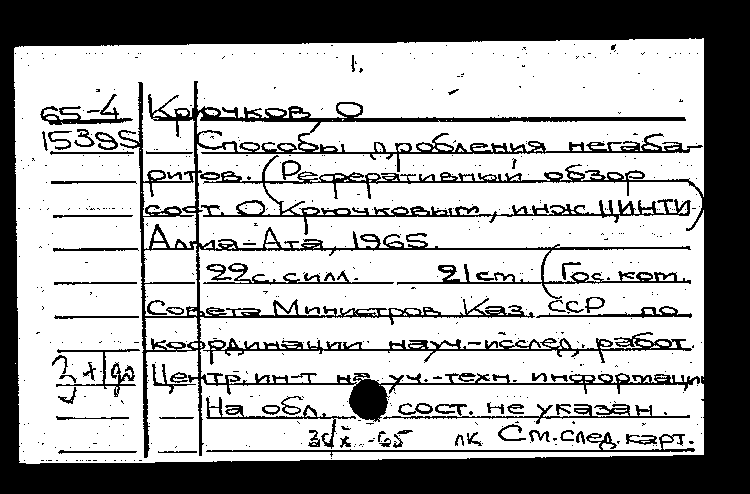 1.
65-4 Крючков, О
15395 Способы дробления негаба-
ритов. (Реферативный обзор
сост. О. Крючковым, инж. ЦИНТИ)
Алма-Ата, 1965.
22 с. с илл. 21 ст. (Гос. ком.
Совета Министров Каз. ССР по
координации науч.-исслед. работ.
Центр. ин-т науч.-техн. информации
На обл. сост. не указан.
-65 лк См. след. карт.